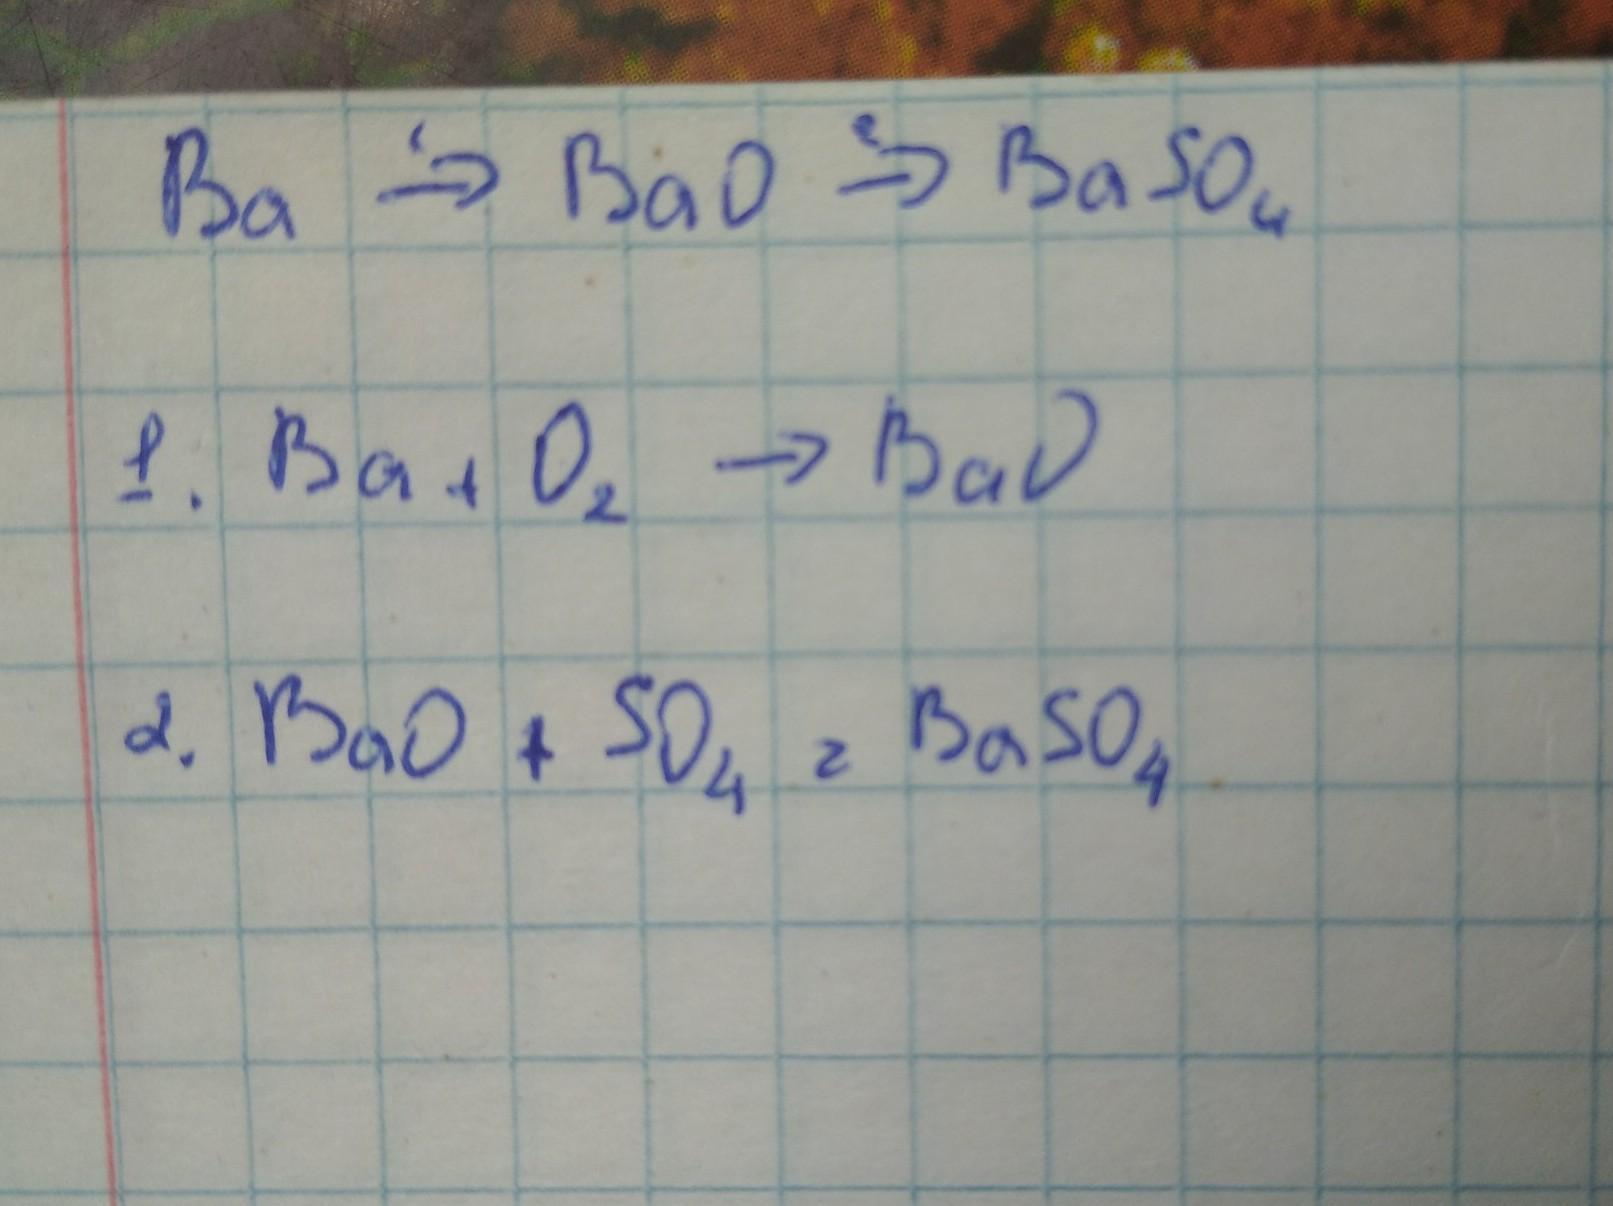 Ba →¹ BaO →² BaSO₄
1. Ba + O₂ → BaO
2. BaO + SO₄ = BaSO₄